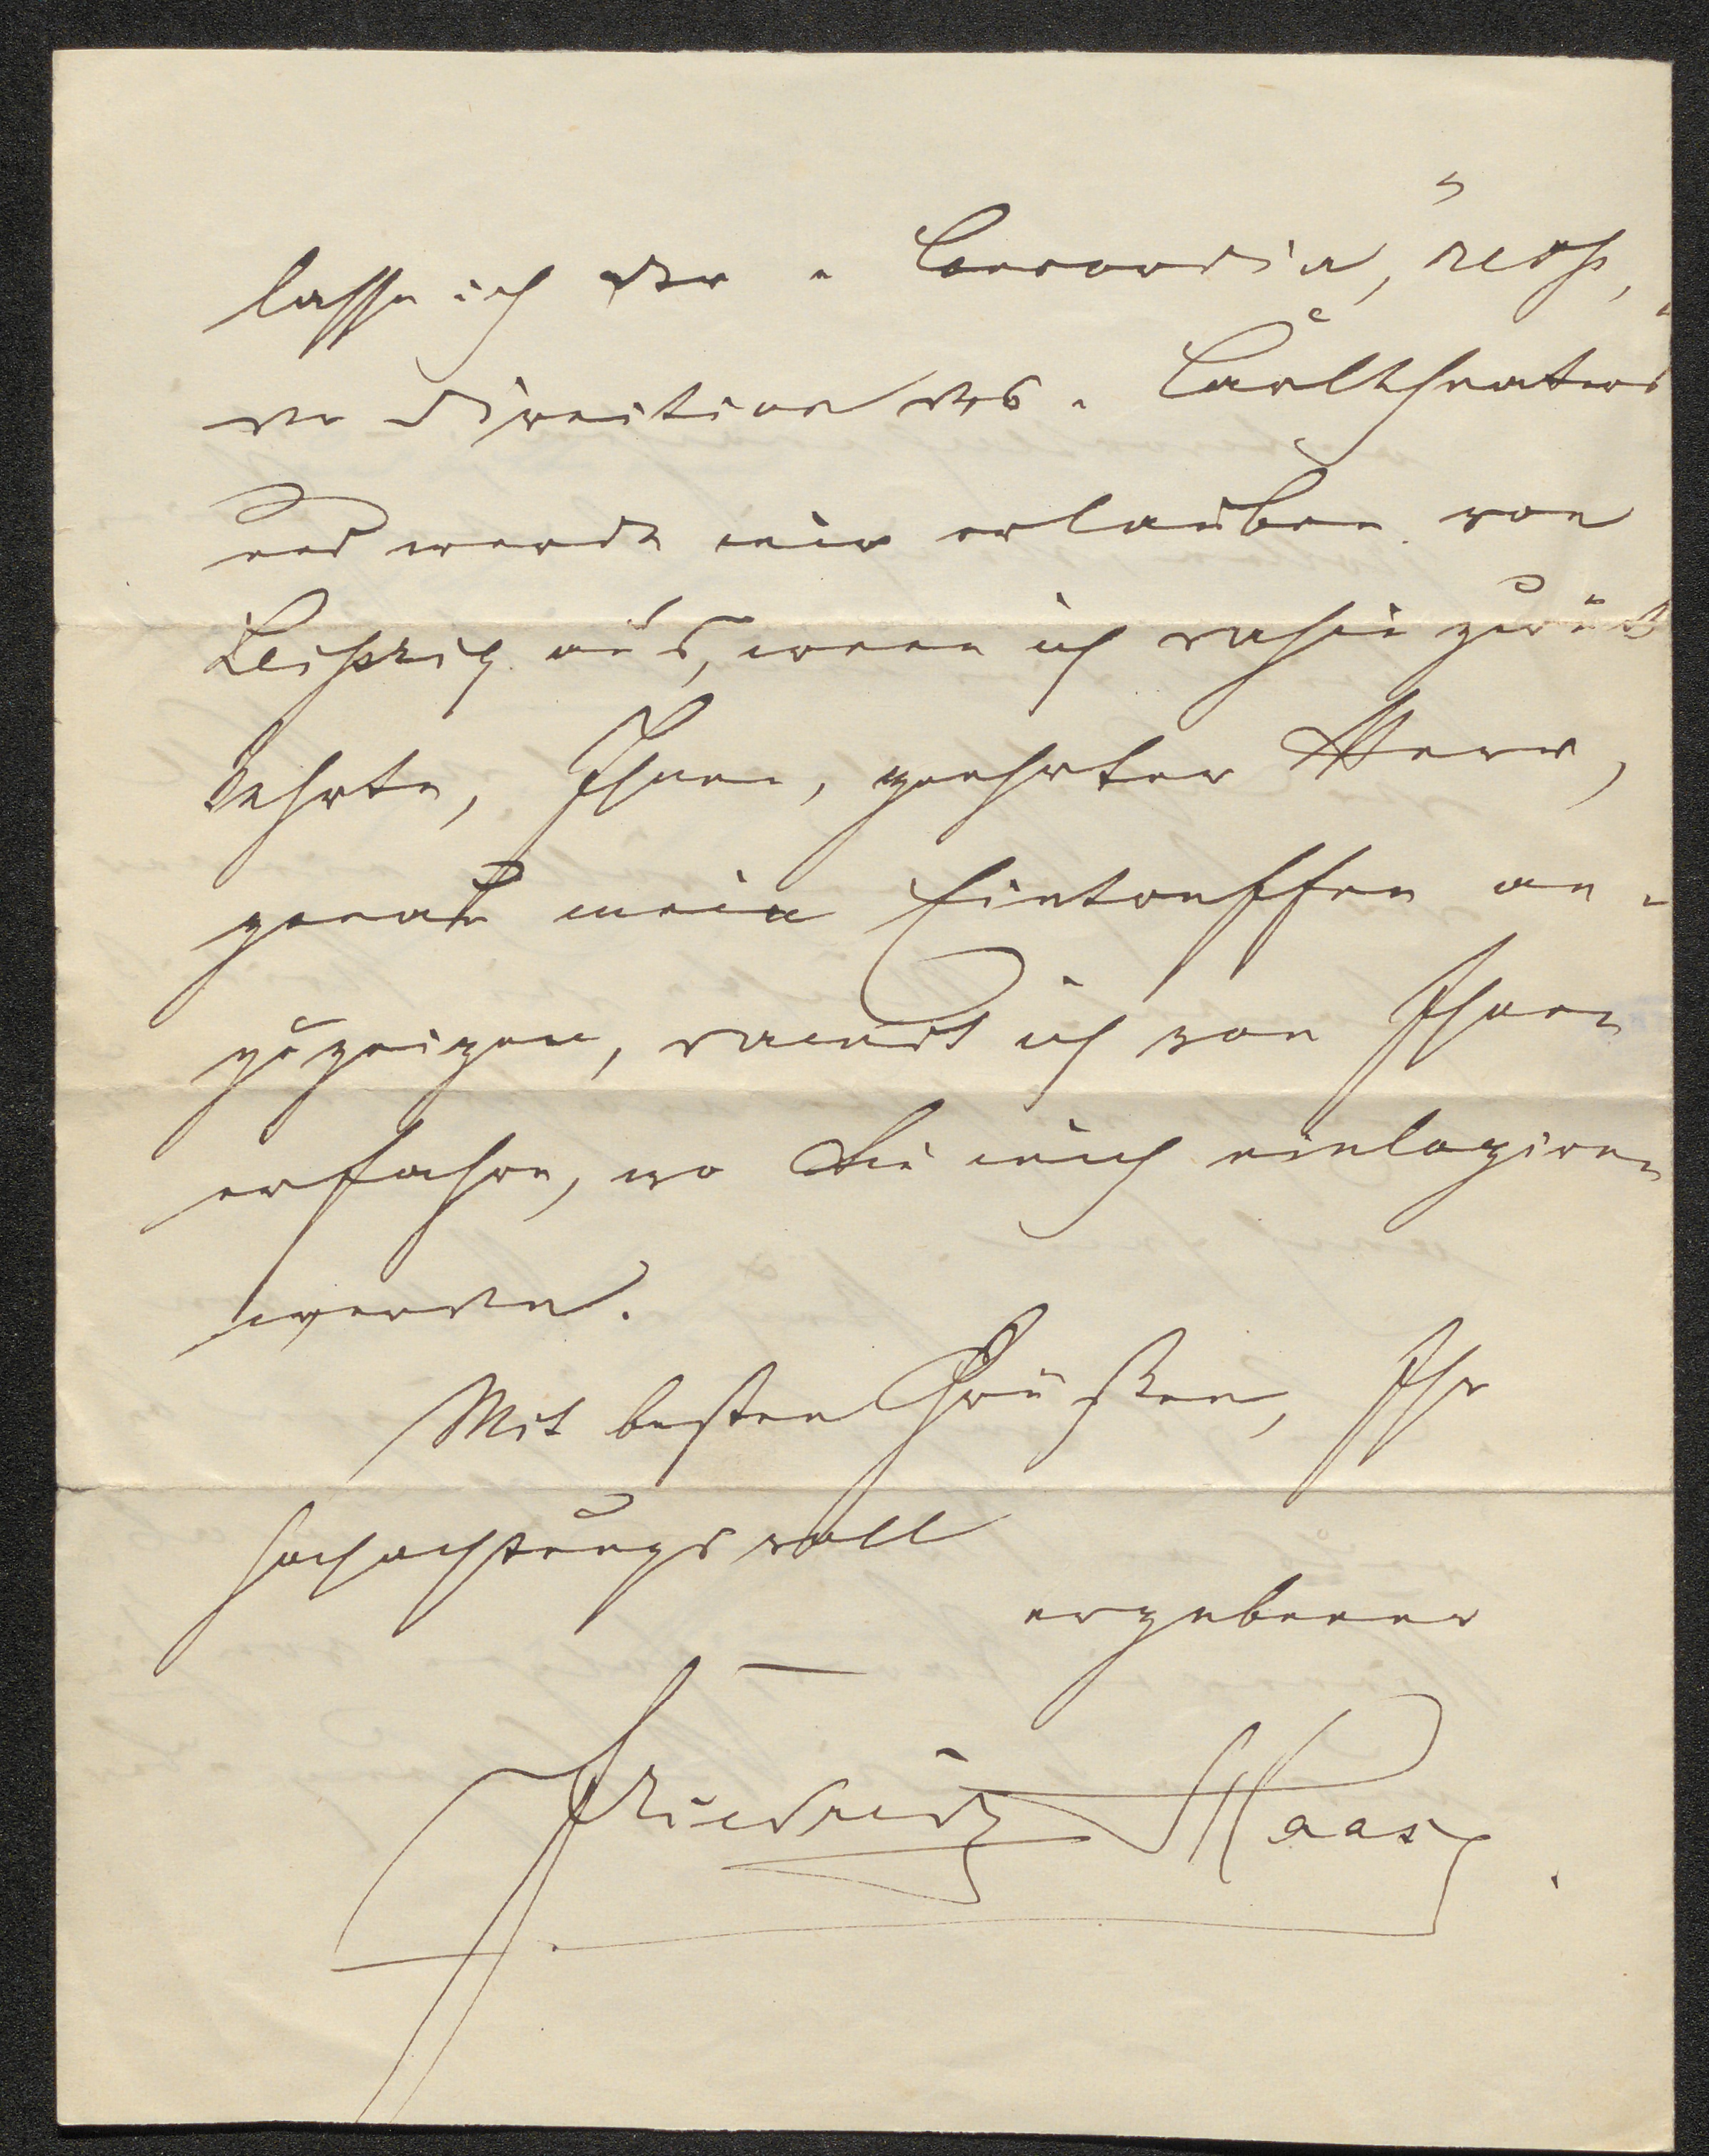 lasse ich der „Concordia", resp,
der Direction des „Carltheaters"
und werde mir erlauben von
Leipzig aus, wenn ich dahin zurük
kehrte, Ihnen, geehrter Herr,
genau mein Eintreffen an-
zuzeigen, damit ich von Ihnen
erfahre, wo Sie mich einlogiren
werden.
Mit besten Grüßen, Ihr
hochachtungsvoll
ergebener
Friedrich Haase